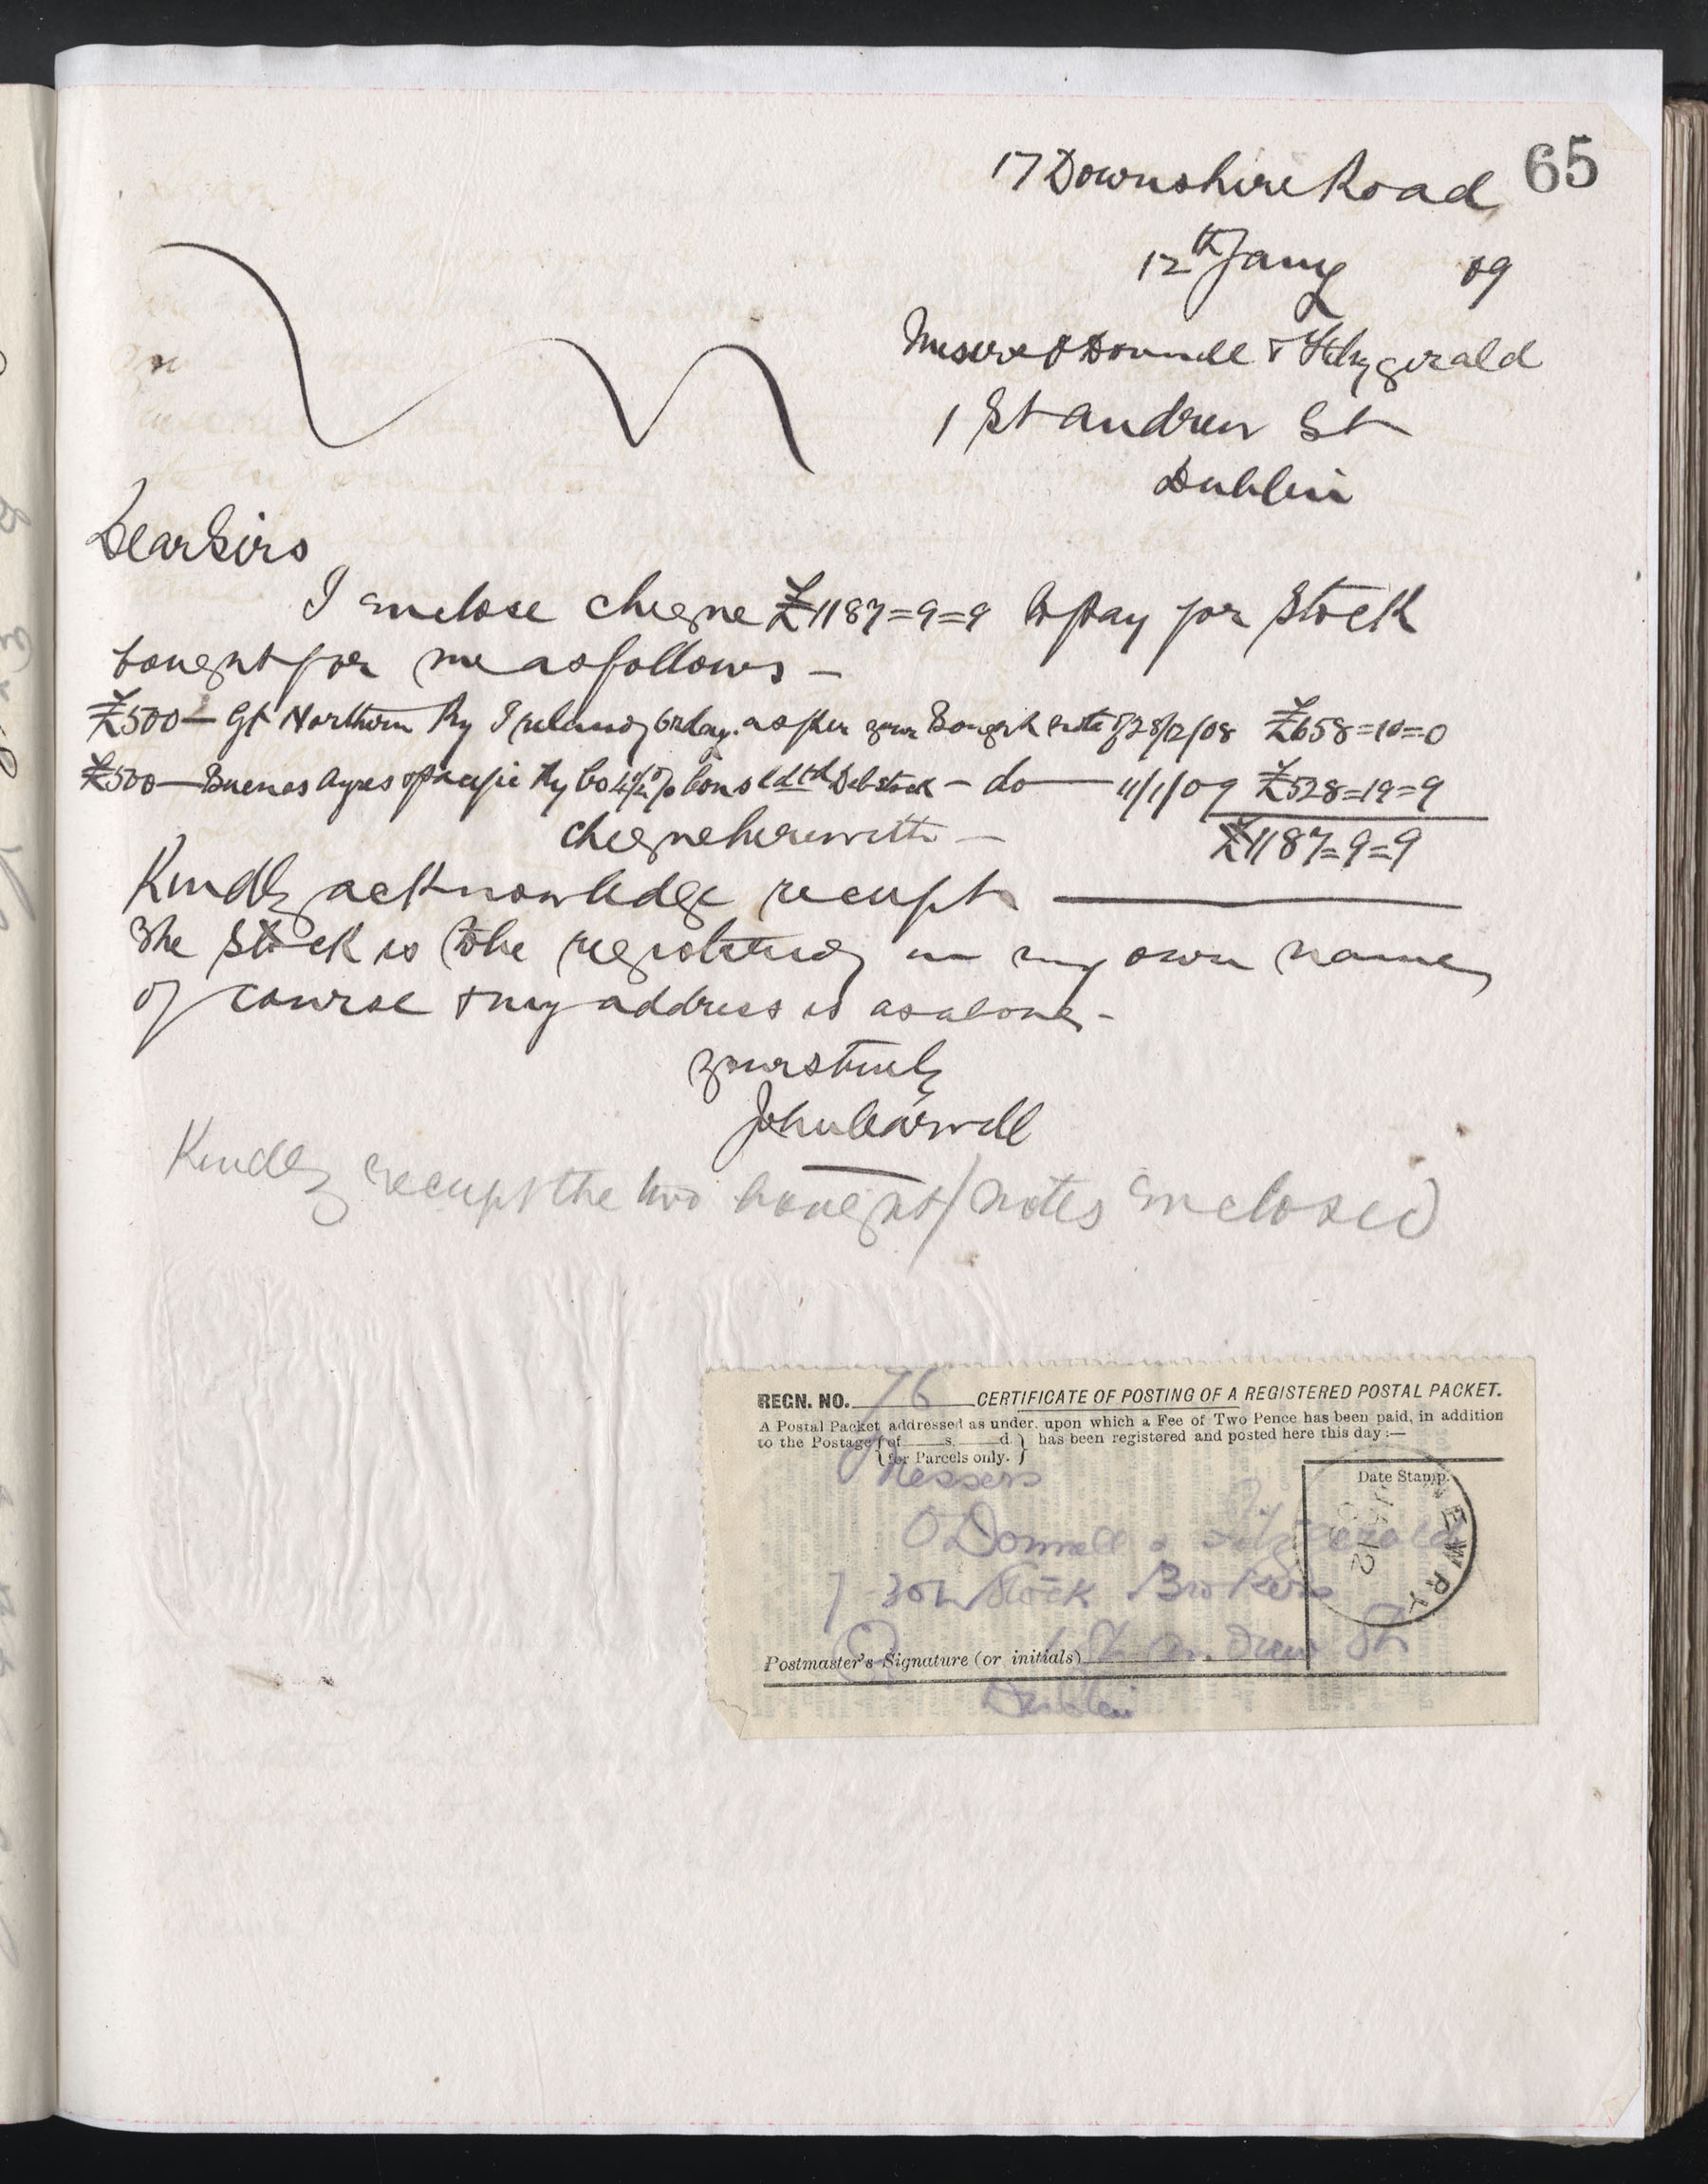 65
17 Downshire Road
12th Jany 09
Messrs O'Donnell & Fitzgerald
1 St Andrew St
Dublin
Dear Sirs
I enclose cheque £1187=9=9 to pay for Stock
bought for me as follows —
£500 — Gt Northern Ry Ireland Orday. as per your Bought note of 28/12/08 £658=10=0
£500 — Buenos Ayres & Pacific Ry Co 4½% Consldtd Deb Stock — do — 11/1/09 £528=19=9
cheque herewith — £1187=9=9
Kindly acknowledge receipt
The Stock is to be registered in my own name,
of course & my address is as above -
yours truly
John Carvill
Kindly receipt the two bought/notes enclosed
REGN. NO. 76 CERTIFICATE OF POSTING OF A REGISTERED POSTAL PACKET.
A Postal Packet addressed as under, upon which a Fee of Two Pence has been paid, in addition
to the Postage { of s. d. } has been registered and posted here this day :—
{ for Parcels only. }
Messers
Date Stamp.
O'Donnell & Fitzgerald
NEWRY
12
Stock Brokers
1 St Andrew St
Postmaster's Signature (or initials)
Dublin